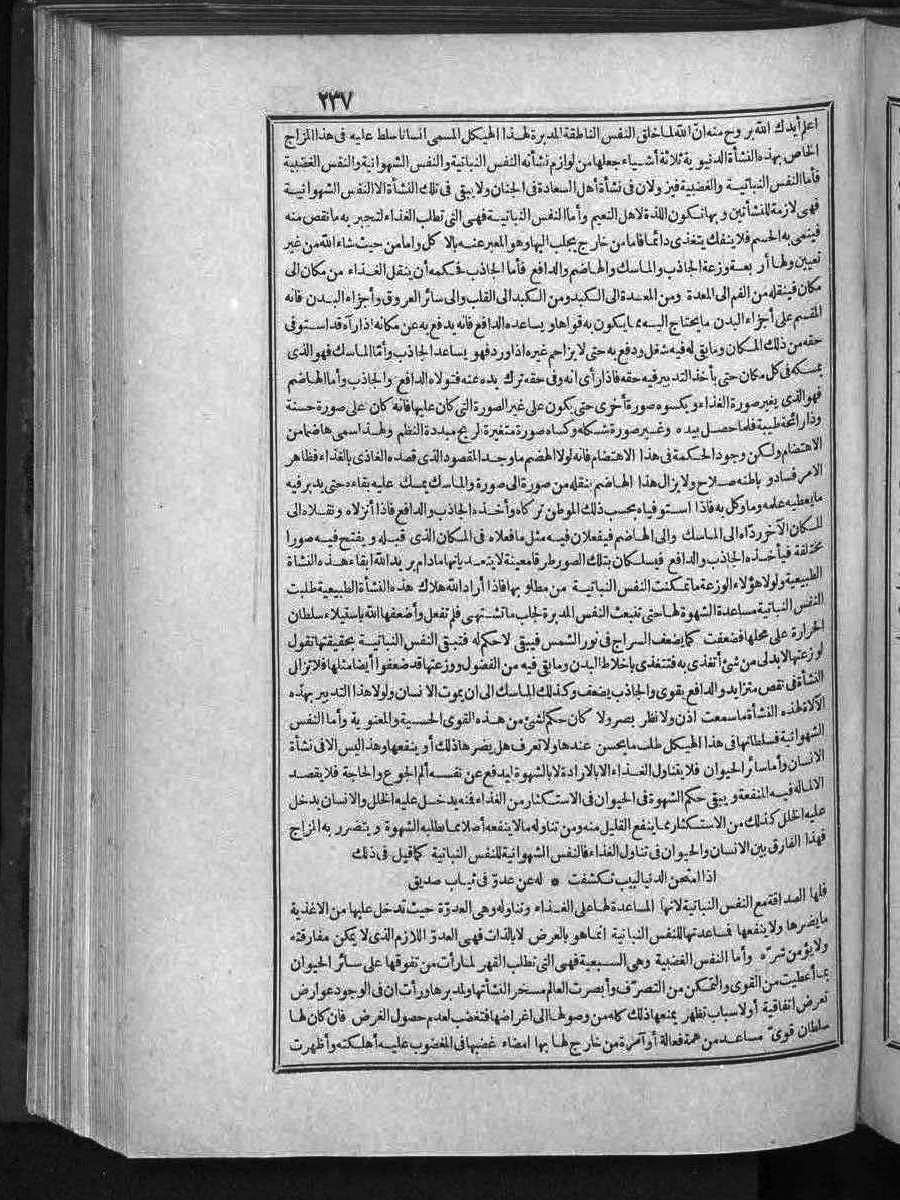 ٢٣٧
اعلم أيدك الله بروح منه ان الله لما خلق النفس الناطقة المدبرة لهذا الهيكل المسمى انسانا سلط عليه فى هذا المزاج
الخاص بهذه النشأة الدنيوية ثلاثة أشياء جعلها من لوازم نشأته النفس النباتية والنفس الشهوانية والنفس الغضبية
فأما النفس النباتية والغضبية فيزولان فى نشأة أهل السعادة فى الجنان ولا يبقى فى تلك النشأة الا النفس الشهوانية
فهى لازمة للنشأتين وبها تكون اللذة لاهل النعيم وأما النفس النباتية فهى التى تطلب الغذاء لتجبر به ما نقص منه
فينمى به الجسم فلا ينفك يتغذى دائما فاما من خارج يجلب اليها وهو المعبر عنه بالاكل واما من حيث شاء الله من غير
تعيين ولها أربعة وزعة الجاذب والماسك والهاضم والدافع فأما الجاذب فحكمه أن ينقل الغذاء من مكان الى
مكان فينقله من الفم الى المعدة ومن المعدة الى الكبد ومن الكبد الى القلب والى سائر العروق وأجزاء البدن فانه
المقسم على أجزاء البدن ما يحتاج اليه مما يكون به قواها ويساعده الدافع فانه يدفع به عن مكانه اذا رآه قد استوفى
حقه من ذلك المكان وما بقى له فيه شغل ودفع به حتى لا يزاحم غيره اذا ورد فهو يساعد الجاذب وأما الماسك فهو الذى
يمسكه فى كل مكان حتى يأخذ التدبير فيه حقه فاذا رأى انه وفى حقه ترك يده عنه فتولاه الدافع والجاذب وأما الهاضم
فهو الذى يغير صورة الغذاء ويكسوه صورة أخرى حتى يكون على غير الصورة التى كان عليها فانه كان على صورة حسنة
وذا رائحة طيبة فلما حصل بيده وغير صورة شكله وكساه صورة متغيرة الريح مبددة النظم ولهذا سمى هاضما من
الاهتضام ولكن وجود الحكمة فى هذا الاهتضام فانه لولا الهضم ما وجد المقصود الذى قصده الغاذى بالغذاء فظاهر
الامر فساد وباطنه صلاح ولا يزال هذا الهاضم ينقله من صورة الى صورة والماسك يمسك عليه بقاءه حتى يدبر فيه
ما يعطيه علمه وما وكل به فاذا استوفياه بحسب ذلك الموطن تركاه وأخذه الجاذب والدافع فاذا أنزلاه ونقلاه الى
المكان الآخر ردّاه الى الماسك والى الهاضم فيفعلان فيه مثل ما فعلاه فى المكان الذى قبله ويفتح فيه صورا
مختلفة فيأخذه الجاذب والدافع فيسلكان بتلك الصور طرقا معينة لا يتعديانها مادام يريد الله ابقاء هذه النشاة
الطبيعية ولولا هؤلاء الوزعة ما تمكنت النفس النباتية من مطلوبها فاذا أراد الله هلاك هذه النشأة الطبيعية طلبت
النفس النباتية مساعدة الشهوة لها حتى تنبعث النفس المدبرة لجلب ما تشتهى فلم تفعل وأضعفها الله باستيلاء سلطان
الحرارة على محلها فضعفت كما يضعف السراج فى نور الشمس فيبقى لا حكم له فتبقى النفس النباتية بحقيقتها تقول
لوزعتها لابد لى من شئ أتغذى به فتتغذى باخلاط البدن وما بقى فيه من الفضول ووزعتها قد ضعفوا أيضا مثلها فلا تزال
النشأة فى نقص متزايد والدافع يقوى والجاذب يضعف وكذلك الماسك الى ان يموت الانسان ولولا هذا التدبير بهذه
الآلالة لهذه النشأة ما سمعت اذن ولا نظر بصر ولا كان حكم لشئ من هذه القوى الحسية والمعنوية وأما النفس
الشهوانية فسلطانها فى هذا الهيكل طلب ما يحسن عندها ولا تعرف هل يضرها ذلك أو ينفعها وهذا ليس الا فى نشأة
الانسان وأما سائر الحيوان فلا يتناول الغذاء الا بالارادة لا بالشهوة ليدفع عن نفسه ألم الجوع والحاجة فلا يقصد
الا ماله فيه المنفعة ويبقى حكم الشهوة فى الحيوان فى الاستكثار من الغذاء فمنه يدخل عليه الخلل والانسان يدخل
عليه الخلل كذلك من الاستكثار مما ينفع القليل منه ومن تناوله ما لا ينفعه أصلا مما تطلبه الشهوة ويتضرر به المزاج
فهذا الفارق بين الانسان والحيوان فى تناول الغذاء فالنفس الشهوانية للنفس النباتية كما قيل فى ذلك
اذا امتحن الدنيا لبيب تكشفت * له عن عدوّ فى ثياب صديق
فلها الصداقة مع النفس النباتية لانها المساعدة لها على الغذاء وتناوله وهى العدوّة حيث تدخل عليها من الاغذية
ما يضرها ولا ينفعها فمساعدتها للنفس النباتية انما هو بالعرض لا بالذات فهى العدوّ اللازم الذى لا يمكن مفارقته
ولا يؤمن شرّه وأما النفس الغضبية وهى السبعية فهى التى تطلب القهر لما رأت من تفوقها على سائر الحيوان
بما أعطيت من القوى والتمكن من التصرّف وأبصرت العالم مسخر النشأتها ولمدبرها ورأت ان فى الوجود عوارض
تعرض اتفاقية أو لاسباب تظهر يمنعها ذلك كله من وصولها الى اغراضها فتغضب لعدم حصول الغرض فان كان لها
سلطان قوىّ مساعد من همة فعالة أو آمرة من خارج لها بها امضاء غضبها فى المغضوب عليه أهلكته وأظهرت